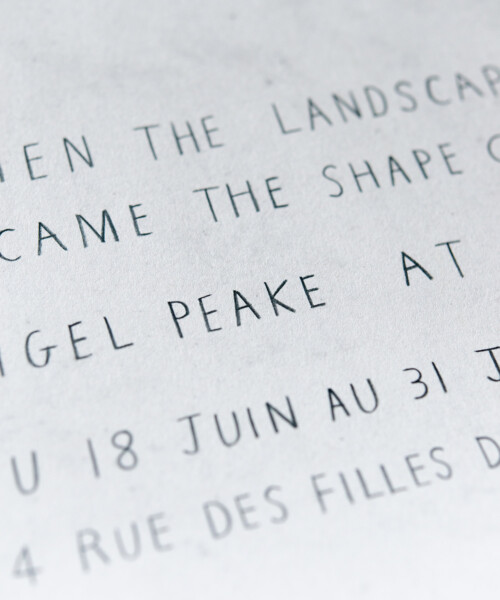 HEN THE LANDSCAP
CAME THE SHAPE
IGEL PEAKE AT
U 18 JUIN AU 31 J
4 RUE DES FILLES D